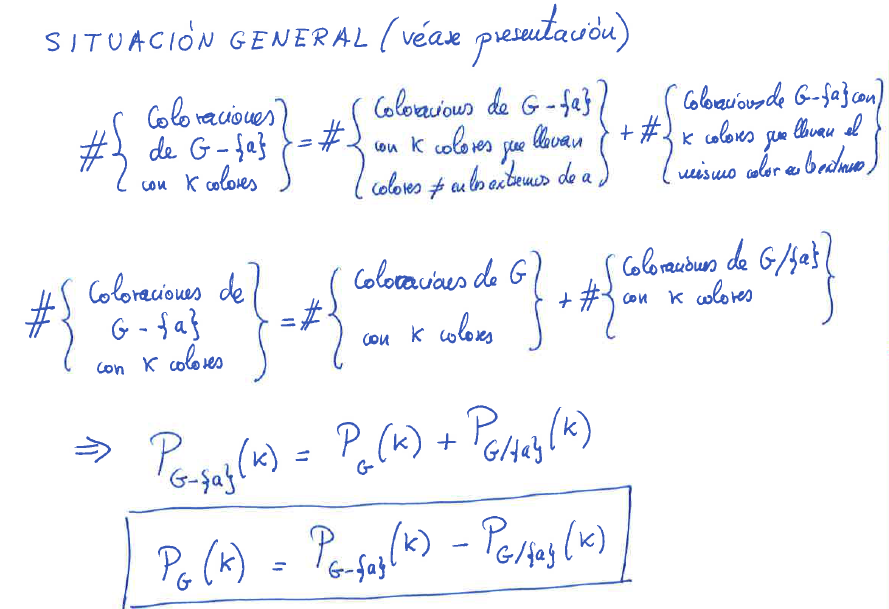 SITUACIÓN GENERAL (véase presentación)
#{Coloraciones de G-{a} con K colores} = #{Coloraciones de G-{a} con K colores que llevan colores ≠ en los extremos de a} + #{Coloraciones de G-{a} con K colores que llevan el mismo color en los extremos}
#{Coloraciones de G-{a} con K colores} = #{Coloraciones de G con K colores} + #{Coloraciones de G/{a} con K colores}
⇒ P_{G-{a}}(K) = P_G(K) + P_{G/{a}}(K)
P_G(K) = P_{G-{a}}(K) - P_{G/{a}}(K)